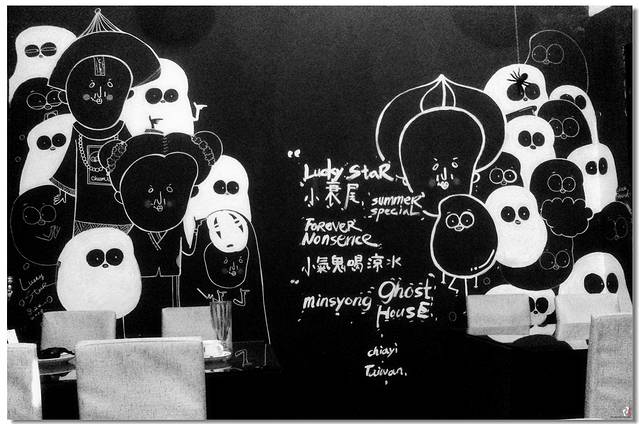 Lucky Star
小衰尾 summer special
Forever
Nonsense
小氣鬼喝涼水
minsyong Ghost House
chiayi
Taiwan.